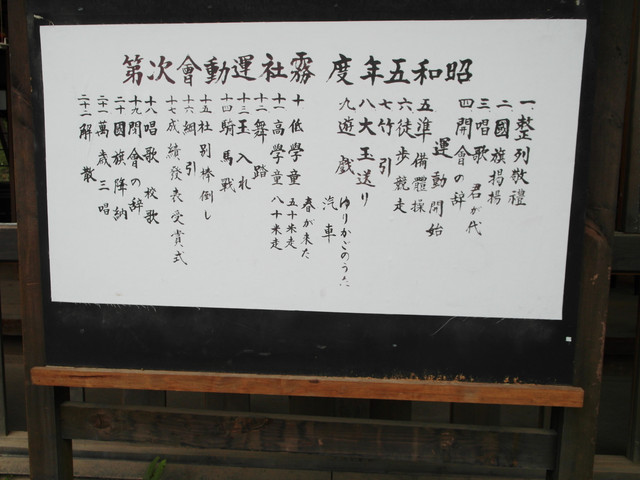 昭和五年度 霧社運動會次第
一、整列敬禮
二、國旗掲揚
三唱歌 君が代
四開會の辞
運動開始
五準備體操
六徒歩競走
七竹引
八大玉送り
九遊戯 ゆりかごのうた
汽車
春が来た
十低學童 五十米走
十一高學童 八十米走
十二舞踏
十三玉入れ
十四騎馬戦
十五社別棒倒し
十六綱引
十七成績發表受賞式
十八唱歌 校歌
十九閉會の辞
二十國旗降納
二十一萬歳三唱
二十二解散